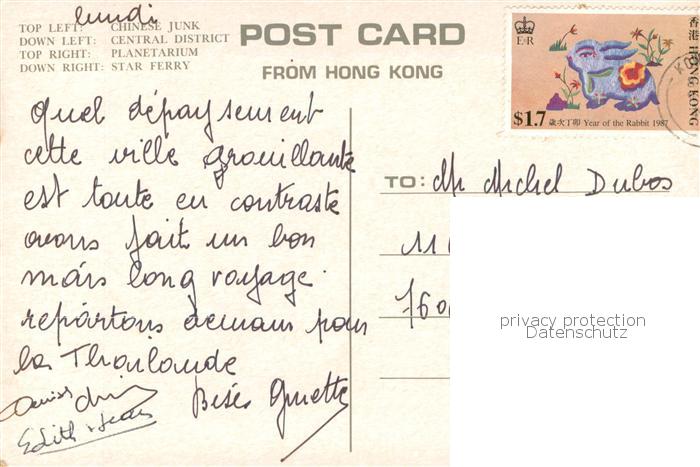 lundi
TOP LEFT: CHINESE JUNK
DOWN LEFT: CENTRAL DISTRICT
TOP RIGHT: PLANETARIUM
DOWN RIGHT: STAR FERRY
POST CARD
FROM HONG KONG
香港 HONG KONG
E II R
$1.7 歲次丁卯 Year of the Rabbit 1987
Quel dépaysement
cette ville grouillante
est toute en contraste
avons fait un bon
mais long voyage.
repartons demain pour
la Thaïlande
Bises Ginette
Edith
TO: Mr Michel Dubos
11
760
privacy protection
Datenschutz